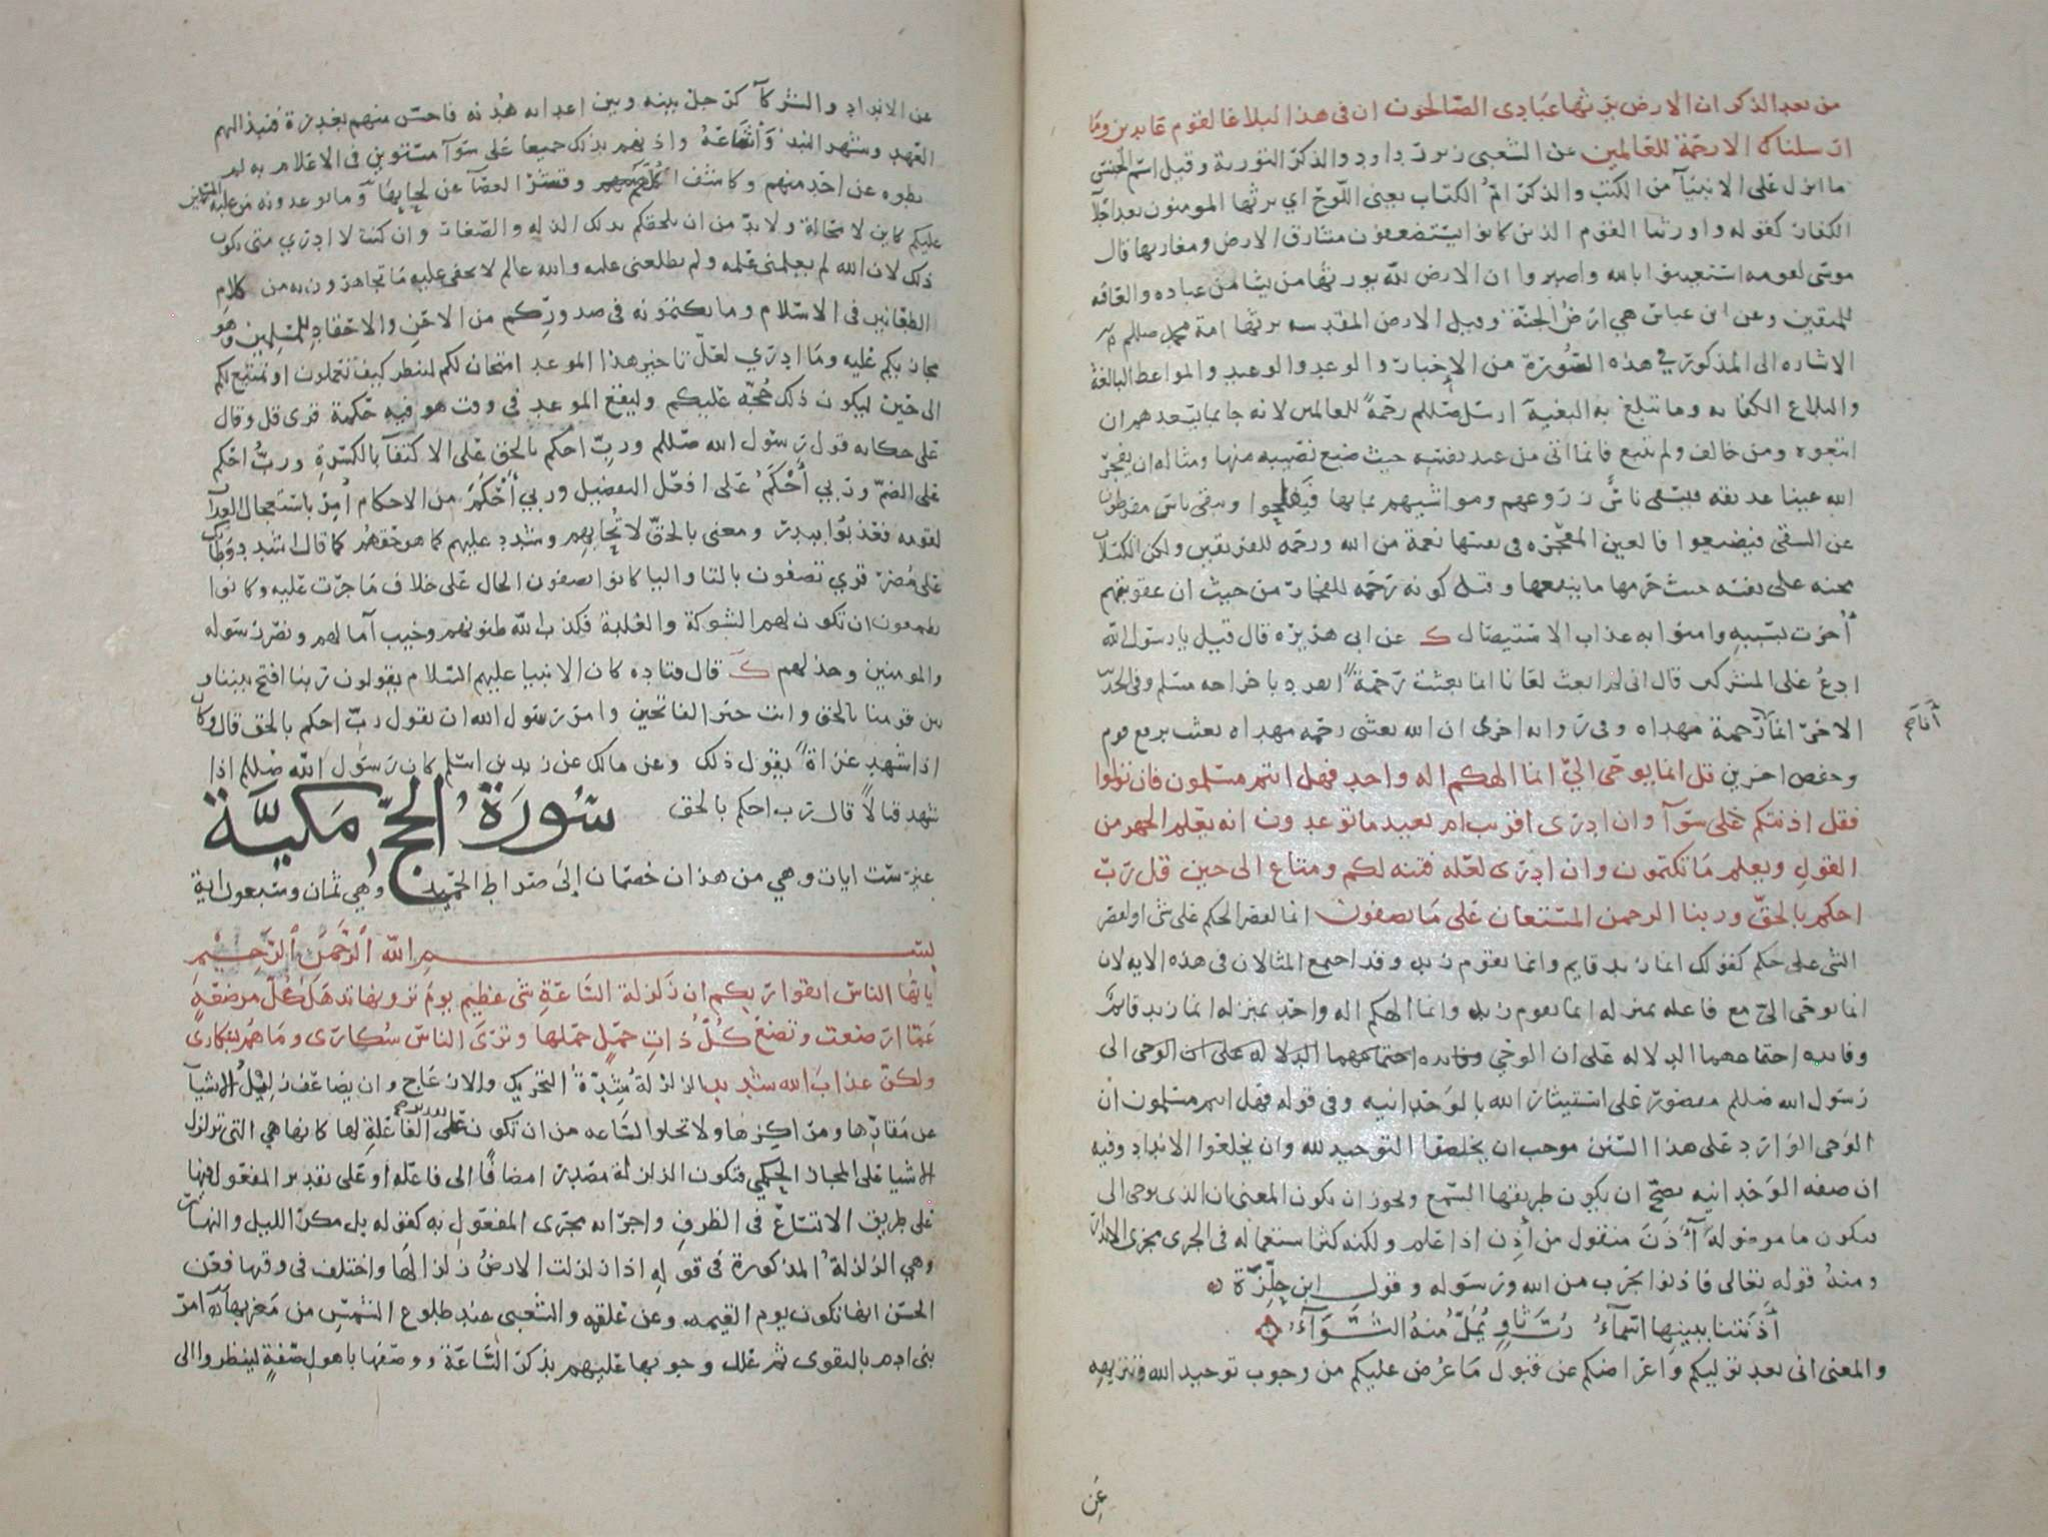 من بعد الذكر ان الارض يرثها عبادي الصالحون ان في هذا لبلاغا لقوم عابدين وما
ارسلناك الا رحمة للعالمين عن الشعبى زبور داود والذكر التورية وقيل اسم الجنس
ما انزل على الانبيآ من الكتب والذكر امّ الكتاب يعنى اللوح اي يرثها المومنون بعد اجلآ
الكفار كقوله واورثنا القوم الذين كانوا يستضعفون مشارق الارض ومغاربها قال
موسى لقومه استعينوا بالله واصبروا ان الارض لله يورثها من يشا من عباده والعاقبه
للمتقين وعن ابن عباس هي ارض الجنة وقيل الارض المقدسه يرثها امة محمد صللم
الاشاره الى المذكور في هذه السورة من الاخبار والوعد والوعيد والمواعظ البالغة
والبلاغ الكفايه وما تبلغ به البغية ارسل صللم رحمة للعالمين لانه جا بما يسعدهم ان
اتبعوه ومن خالف ولم يتبع فانما اتى من عند نفسه حيث ضيع نصيبه منها ومثاله ان يفجر
الله عينا غديقه فيسقى ناسٌ زروعهم ومواشيهم بمايها فيفلحوا ويبقى ناس مفرطون
عن السقى فيضيعوا فالعين المفجره في نفسها نعمة من الله ورحمه للفريقين ولكن الكسلان
محنه على نفسه حيث حرمها ما ينفعها وقيل كونه رحمه للفجار من حيث ان عقوبتهم
أخرت بسببه وامنوا به عذاب الاستيصال ك عن ابى هريره قال قيل يا رسول الله
ادع على المشركين قال انى لم ابعث لعانا انما بعثت رحمة انفرد باخراجه مسلم وفي الحد
الاخر انما رحمة مهداه وفي روايه اخرى ان الله بعثنى رحمه مهداه بعثت برفع قوم
أنا صح
وخفض اخرين قل انما يوحى اليّ انما الهكم اله واحد فهل انتم مسلمون فان تولوا
فقل اذنتكم على سوآ وان ادرى اقريب ام بعيد ما توعدون انه يعلم الجهر من
القول ويعلم ما تكتمون وان ادرى لعله فتنه لكم ومتاع الى حين قل ربّ
احكم بالحقّ وربنا الرحمن المستعان على ما تصفون انما لقصر الحكم على شى او لقصر
الشى على حكم كقولك انما زيد قايم وانما يقوم زيد وقد اجتمع المثالان في هذه الايه لان
انما يوحى اليّ مع فاعله بمنزله انما يقوم زيد وانما الهكم اله واحد بمنزله انما زيد قايم
وفايده اجتماعهما الدلاله على ان الوحي الى
رسول الله صللم مقصور على استيثار الله بالوحدانيه وفي قوله فهل انتم مسلمون ان
الوحى الوارد على هذا السنن موجب ان يخلصوا التوحيد لله وان يخلعوا الانداد وفيه
ان صفه الوحدانيه يصح ان يكون طريقها السمع ويجوز ان يكون المعنى ان الذى يوحى الى
فيكون ما موصوله آذن منقول من أذن اذا علم ولكنه كثر استعماله فى الجرى مجرى الانذار
ومنه قوله تعالى فاذنوا بحرب من الله ورسوله وقول ابن حلّزة
آذنتنا ببينها اسمآء رُبّ ثاوٍ يُملّ منه الثوآء
والمعنى انى بعد توليكم واعراضكم عن قبول ما عرض عليكم من وجوب توحيد الله وتنزيهه
عن
عن الانداد والشركآ كرجل بينه وبين اعدايه هدنه فاحس منهم بغدرة فنبذ اليهم
العهد وشهر النبذ وأشاعه واذنهم بذلك جميعا على سوآ مستوين فى الاعلام به لم
يطوه عن احد منهم وكاشف كلهم وقشر العصا عن لحايها وما توعدونه من غلبة المسلمين
عليكم كاين لا محالة ولا بدّ من ان يلحقكم بذلك الذله والصغار وان كنت لا ادري متى يكون
ذلك لان الله لم يعلمنى علمه ولم يطلعنى عليه والله عالم لا يخفى عليه ما تجاهرون به من كلام
الطعانين فى الاسلام وما يكتمونه فى صدوركم من الاحن والاحقاد للمسلمين وهو
مجازيكم عليه وما ادري لعل تاخير هذا الموعد امتحان لكم لينظر كيف تعملون او تمتيع لكم
الى حين ليكون ذلك حُجّة عليكم وليقع الموعد في وقت هو فيه حكمة قرى قل وقال
على حكايه قول رسول الله صللم وربّ احكم بالحق على الاكتفآ بالكسرة وربُّ احكم
على الضمّ وربي أحْكَمُ على افعل التفضيل وربي أحْكَمَ من الاحكام أمر باستعجال العذاب
لقومه فعذبوا ببدر ومعنى بالحقّ لا تُحابهم وشدد عليهم كما هو حقهم كما قال اشدد وطأتك
على مُضر قري تصفون بالتا واليا كانوا يصفون الحال على خلاف ما جرت عليه وكانوا
يطمعون ان تكون لهم الشوكة والغلبة فكذب الله ظنونهم وخيب آمالهم ونصر رسوله
والمومنين وخذلهم ك قال قتاده كان الانبيا عليهم السلام يقولون ربنا افتح بيننا و
بين قومنا بالحق وانت خير الفاتحين وامر رسول الله ان يقول ربّ احكم بالحق قال وكان
اذا شهد غزاة يقول ذلك وعن مالك عن زيد بن اسلم كان رسول الله صللم اذا
شهد قتالا قال رب احكم بالحق سُورَةُ الحجّ مَكيَّة
غير ست ايات وهي من هذان خصمان إلى صراط الحميد وهي ثمان وسبعون اية
بسم الله الرَّحمن الرَّحيم
يايها الناس اتقوا ربكم ان زلزلة السّاعة شى عظيم يوم ترونها تذهل كُلّ مرضعة
عمّا ارضعت وتضع كُلُّ ذات حملٍ حملها وترَى الناس سُكارى وما هم بسكارى
ولكن عذابَ الله شديد الزلزلة شدّة التحريك والازعاج وان يضاعف زليل الاشيآ
عن مقارّها ومراكزها ولا تخلوا السّاعه من ان تكون على تقدير الفاعلة لها كانها هي التى تزلزل
الاشيا على المجاز الحكمي فتكون الزلزلة مصدرا مضافًا الى فاعله او على تقدير المفعول فيها
على طريق الاتساع فى الظرف واجرآيه مجرى المفعول به كقوله بل مكر الليل والنهار
وهي الزلزلة المذكورة فى قوله اذا زلزلت الارض زلزالها واختلف فى وقتها فعن
الحسن انها تكون يوم القيمة وعن علقمه والشعبى عند طلوع الشمس من مغربها امر
بنى ادم بالتقوى ثم علل وجوبها عليهم بذكر السّاعة ووصفها باهول صفةٍ لينظروا الى